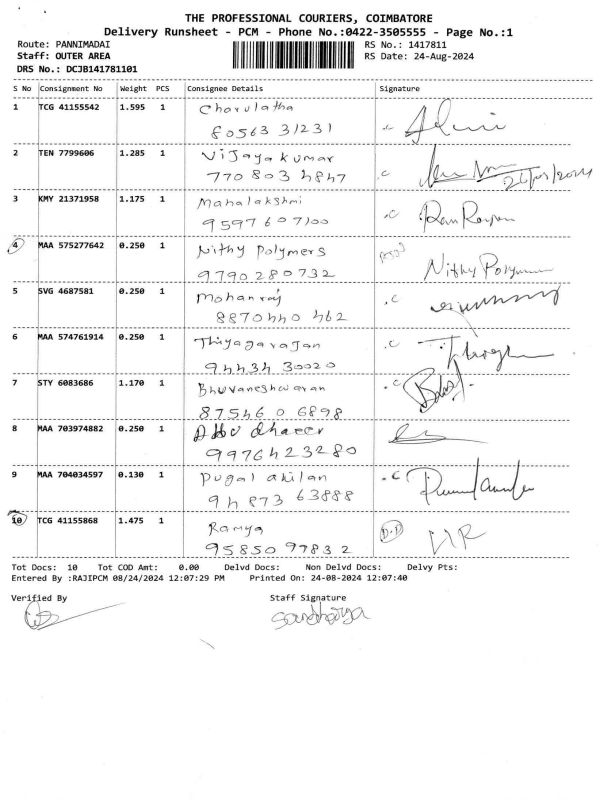 THE PROFESSIONAL COURIERS, COIMBATORE
Delivery Runsheet - PCM - Phone No.:0422-3505555 - Page No.:1
Route: PANNIMADAI RS No.: 1417811
Staff: OUTER AREA RS Date: 24-Aug-2024
DRS No.: DCJB141781101
S No Consignment No Weight PCS Consignee Details Signature
1 TCG 41155542 1.595 1 Charulatha
80563 31231
2 TEN 7799606 1.285 1 Vijayakumar
770 803 4847
3 KMY 21371958 1.175 1 Mahalakshmi
9597 607100
4 MAA 575277642 0.250 1 Nithy Polymers
9790280732 Nithy Polymers
5 SVG 4687581 0.250 1 Mohanraj .C
8870440 462
6 MAA 574761914 0.250 1 Thiyagarajan .C
94434 30020
7 STY 6083686 1.170 1 Bhuvaneshwaran .C
87546 0 6898
8 MAA 703974882 0.250 1 Abu dhaeer
9976423280
9 MAA 704034597 0.130 1 Pugal akilan .C
94 873 63888
10 TCG 41155868 1.475 1 Ramya
95850 97832
Tot Docs: 10 Tot COD Amt: 0.00 Delvd Docs: Non Delvd Docs: Delvy Pts:
Entered By :RAJIPCM 08/24/2024 12:07:29 PM Printed On: 24-08-2024 12:07:40
Verified By Staff Signature